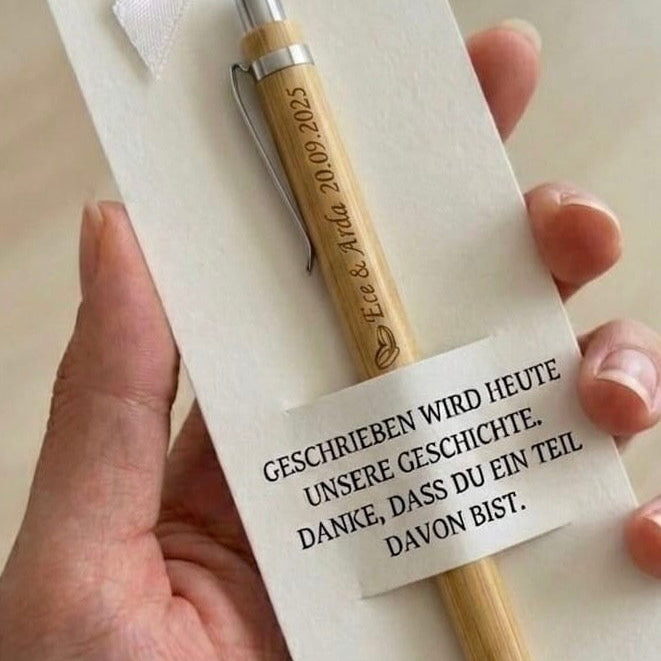 Ece & Arda 20.09.2025
GESCHRIEBEN WIRD HEUTE
UNSERE GESCHICHTE.
DANKE, DASS DU EIN TEIL
DAVON BIST.